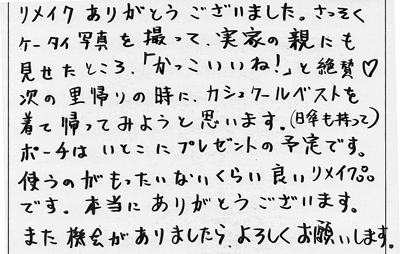 リメイク ありがとう ございました。さっそく
ケータイ写真 を 撮って、実家の親にも
見せたところ、「かっこいいね!」と絶賛♡
次の 里帰りの時に、カシュクールベストを
着て帰ってみようと思います。(日傘も持って)
ポーチは いとこに プレゼントの 予定です。
使うのが もったいないくらい 良い リメイク品
です。本当に ありがとう ございます。
また 機会が ありましたら、よろしく お願いします。